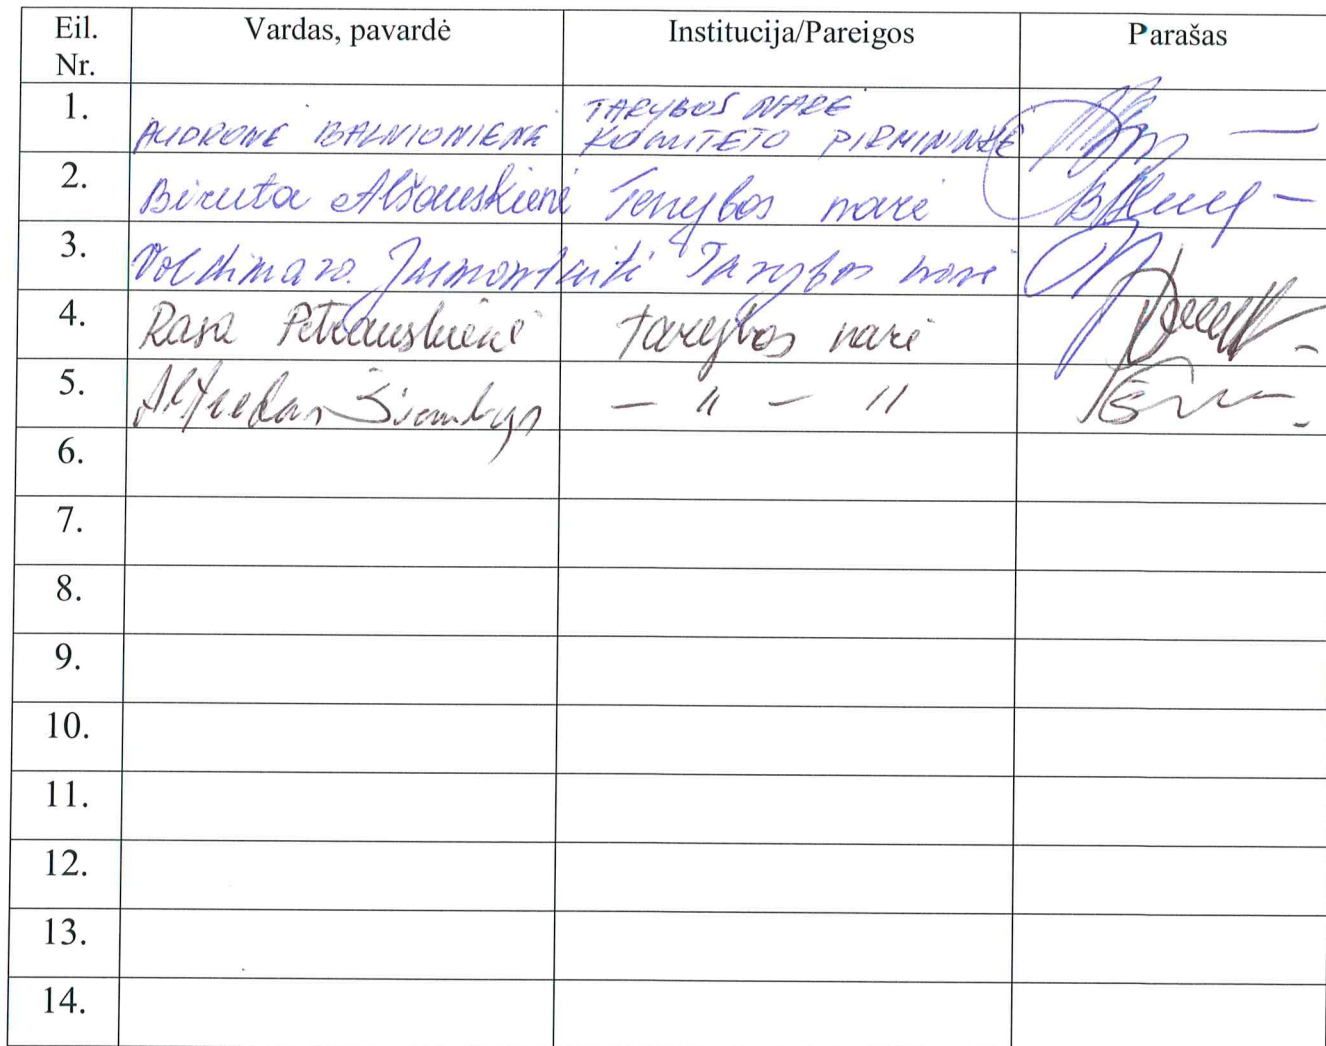 Eil. Nr. Vardas, pavardė Institucija/Pareigos Parašas
1. AUDRONĖ BALNIONIENĖ TARYBOS NARĖ KOMITETO PIRMININKĖ
2. Biruta Alšauskienė Tarybos narė
3. Valdimara Jasmontaitė Tarybos narė
4. Rasa Petrauskienė tarybos narė
5. Alfredas – " – "
6.
7.
8.
9.
10.
11.
12.
13.
14.